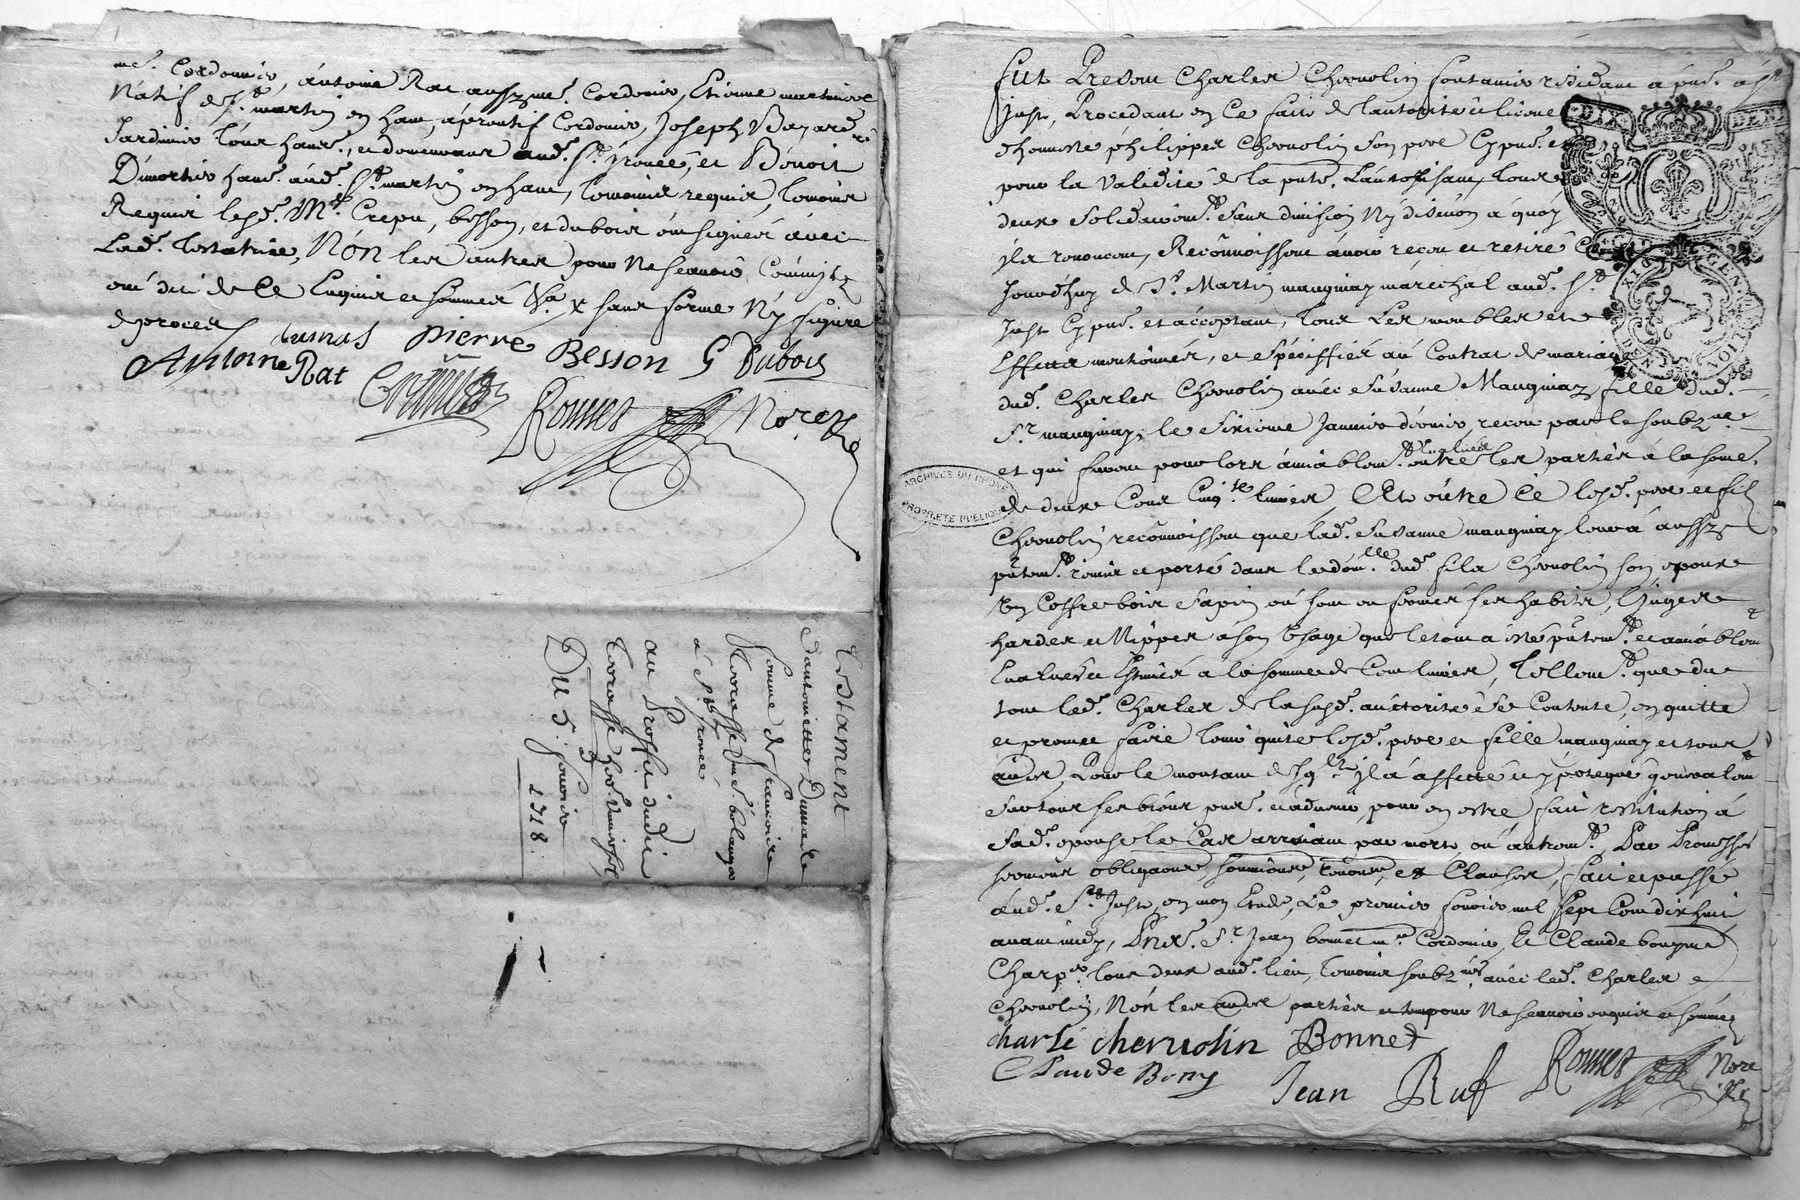 me. Cordonnier, antoine Rat aussy me. Cordonier, Etienne
Natif de St. martin en haut, aprentif Cordonier, Joseph Bayard
Jardinier tous hans. et demeurans aud. St. irenée, et Benoit
Dimortier hans. aud. St. martin en haut, temoins requis,
Requis lesd. Mrs. Crepu, besson, et dubois ont signés avec
Lad. testatrice, Non les autres pour ne scavoir
ont dit de ce Enquis et sommés sans forme Ny figure
de proces
dumas pierre Besson G Dubois
Antoine Rat
Ronnet Nore
Testament
d'antoinette Dumas
femme de
à St. irenée
au Proffit dudit
Du 5e. fevrier
1718.
Fut Present Charles Chervolin fontanier residant à St.
Just, Procedant en Ce fait de l'autorité et licence
d'honneste philippes Chervolin son pere Cy pnt. et
pour la validité de la pnte. L'autorisant, tous
deux solidairemt. sans division Ny discution a quoy
ils renoncent, Reconnoissent avoir reçu et retiré Ce
Jourd'huy de Sr. Martin mauginay marechal aud. St.
Just Cy pnt. et acceptant, tous les meubles et
Effects mentionnés, et speciffiés au Contrat de mariage
dud. Charles Chervolin avec Susanne Mauginay fille dud.
Sr. mauginay, le sixieme Janvier dernier, reçeu par le soubzne.
et qui furent pour lors amiablemt. Evalués entre les parties à la some.
de deux Cens Cinqte. livres, Et outre Ce lesd. pere et fils
Chervolin reconnoissent que lad. Susanne mauginay leur a aussy
pntemt. remis et porté dans le domlle. dud. fils Chervolin son epoux
un Coffre bois sapin où sont enfermés ses habits, linges
hardes et Nippes à son usage que le tout a esté pntemt. et amiablemt.
Evalués et Estimés a la somme de Cent livres, Tellemt. que du
tout led. Charles de la susd. authorité se Contente, en quitte
et promet faire tenir quite lesd. pere et fille mauginay et tous
autres, Pour le montant desq. il a affecté et ypotequé generalemt.
sur tous ses biens pnts. et advenir pour en estre fait restitution à
sad. epouse le Cas arrivant par mort ou autremt. Par Promesses
sermens obligaons, soumions, renons, et Clauses, fait et passé
aud. St. Just, en mon Etude, Le premier fevrier mil sept Cent dixhuit
avant midy, Pnts. Sr. Jean bonnet me Cordonier, et Claude
Charp. tous deux aud. lieu, temoins soubznés. avec led. Charles
Chervolin, Non les autres parties pour Ne scavoir enquis et sommés
charle cheruolin Bonnet
Claude Bony
Jean Ruf Ronnet Nore
DIX DEN
ARCHIVES DU RHONE
PROPRIETE PUBLIQUE